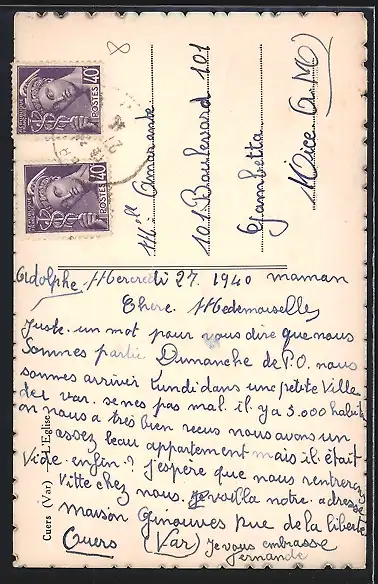 40c
POSTES
40c
POSTES
8
Mlle Amarante
101 Boulevard 101
Gambetta
Nice A.M)
Adolphe. Mercredi 27. 1940 maman
Chere Mademoiselle
Juste un mot pour vous dire que nous
sommes partie Dimanche de P.O. nous
sommes arriver Lundi dans une petite Ville
du var. se nes pas mal. il y a 3.000 habit
on nous a très bien recus nous avons un
assez beau appartement mais il était
Vide enfin? j'espère que nous rentrerons
Vitte chez nous. voilla notre adresse
maison Ginouves Rue de la liberte
Cuers (Var) je vous embrasse
Fernande
Cuers (Var) — L'Eglise